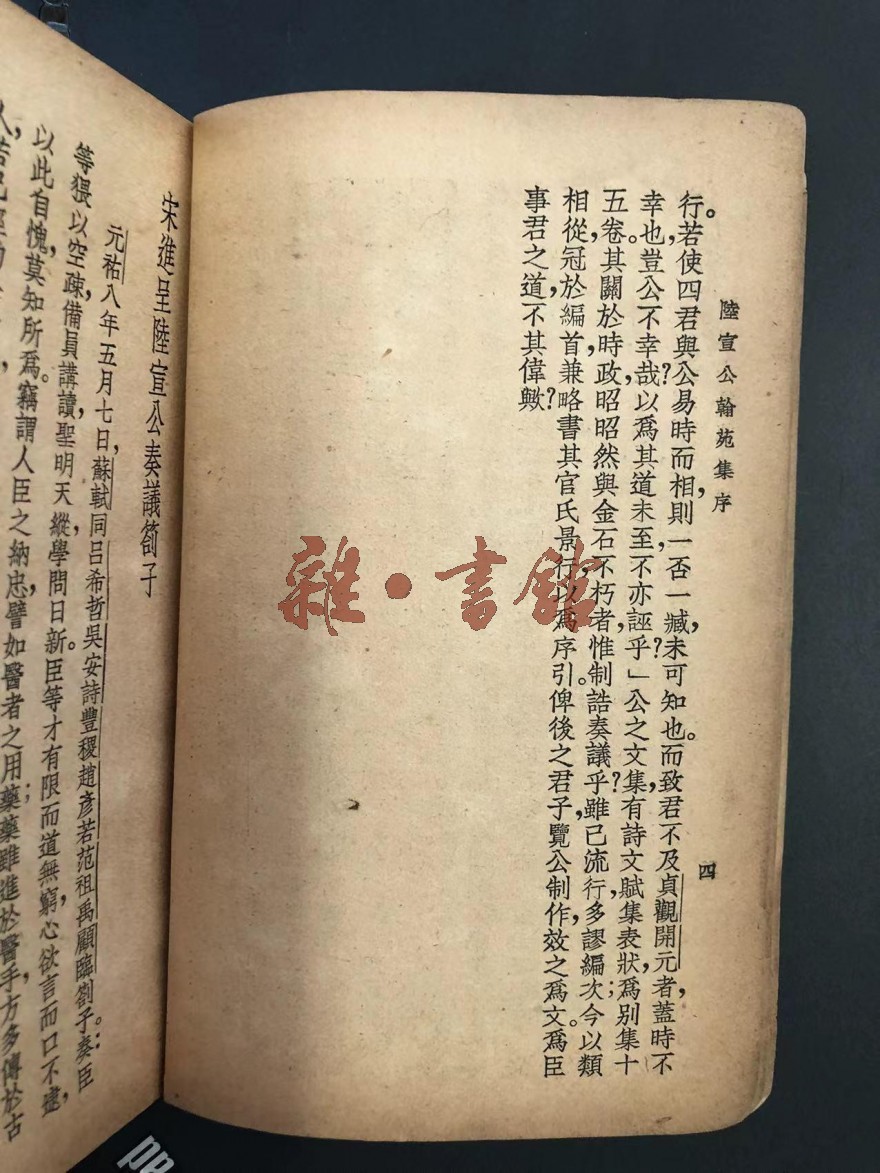 陸宣公翰苑集序
四
行。若使四君與公易時而相，則一否一臧，未可知也。而致君不及貞觀開元者，蓋時不
幸也？豈公不幸哉？以爲其道未至，不亦誣乎？」公之文集有詩文賦集表狀，爲別集十
五卷。其關於時政，昭昭然與金石不朽者，惟制誥奏議乎？雖已流行，多謬編次；今以類
相從，冠於編首，兼略書其官氏景行，以爲序引。俾後之君子，覽公制作，效之爲文。爲臣
事君之道，不其偉歟？
宋進呈陸宣公奏議劄子
元祐八年五月七日，蘇軾同呂希哲吳安詩豐稷趙彥若范祖禹顧臨劄子奏：臣
等猥以空疎，備員講讀，聖明天縱，學問日新。臣等才有限而道無窮，心欲言而口不逮，
以此自愧，莫知所爲。竊謂人臣之納忠，譬如醫者之用藥；藥雖進於醫手，方多傳於古
人，若已經
雜·書館